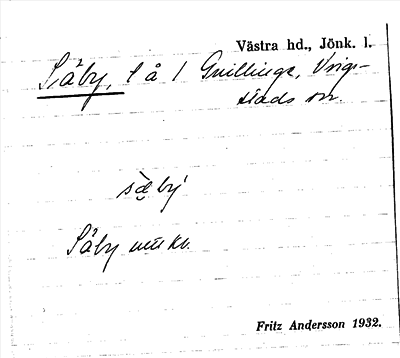 Västra hd., Jönk. l.
Säby, l å 1 Gnillinge, Vrig-
stads sn.
sä̀by
Säby
Fritz Andersson 1932.